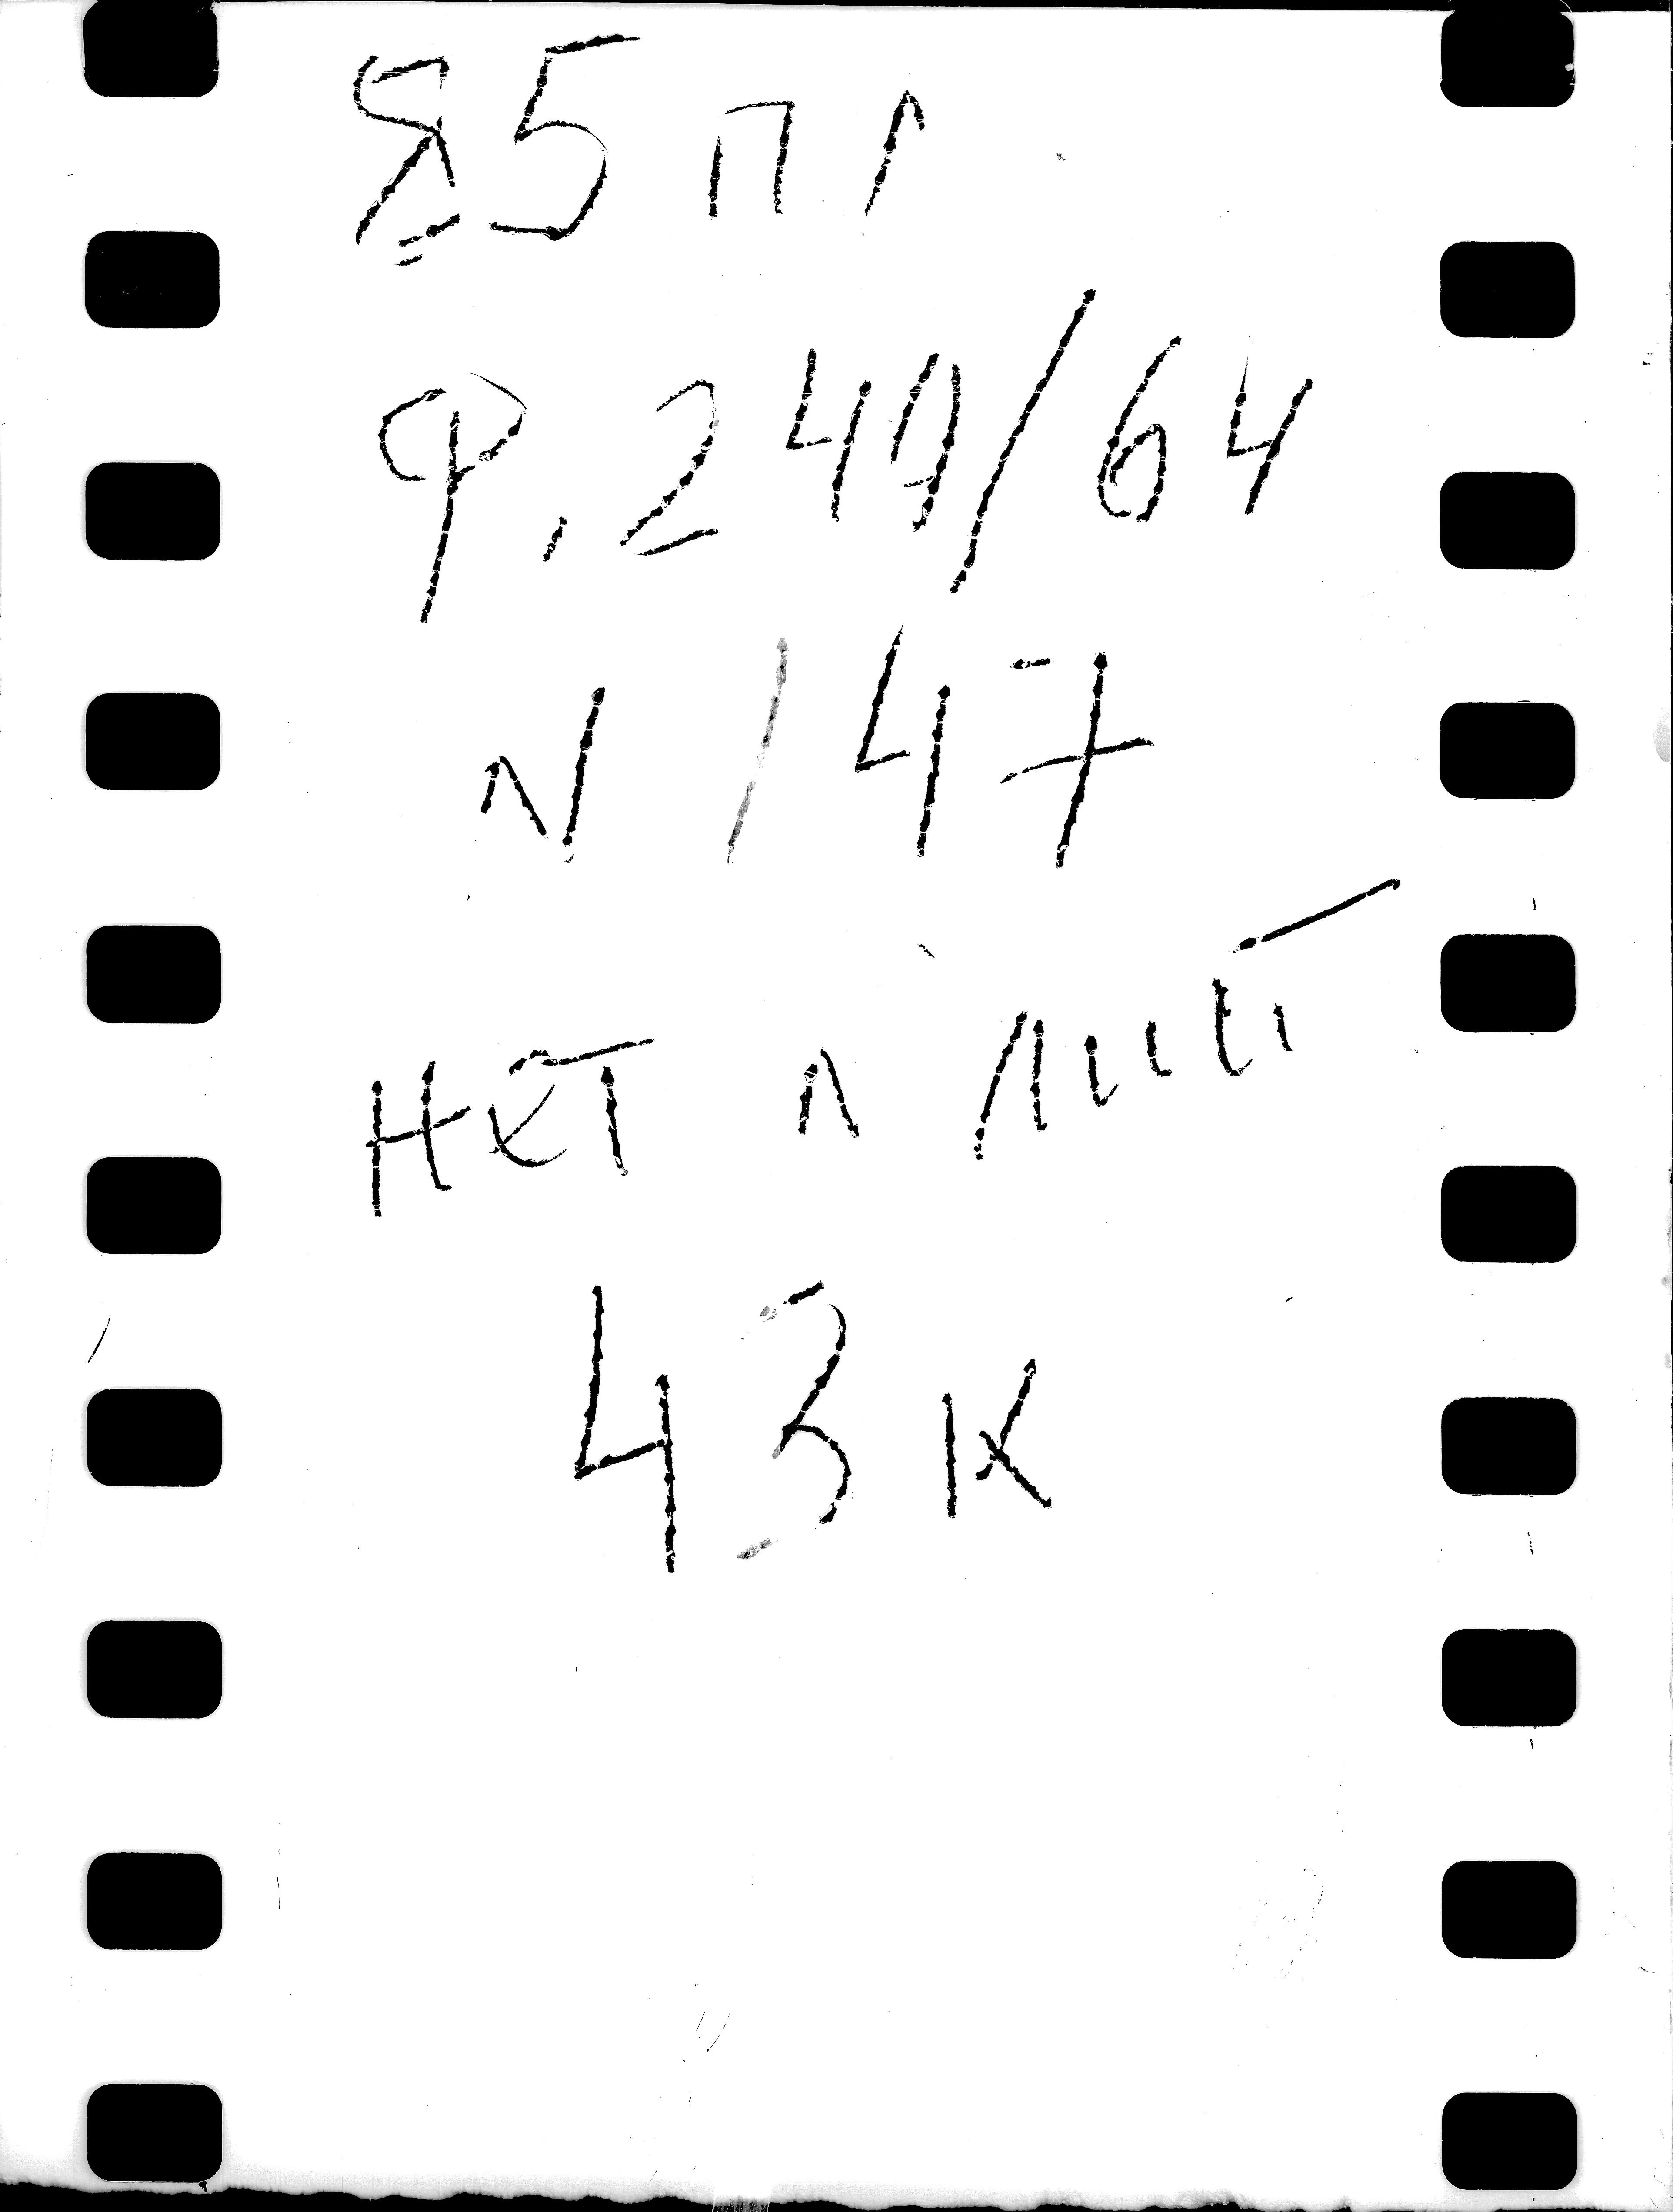 Я5 пл
Ф. 249/64
N 147
нет л лит
43 к